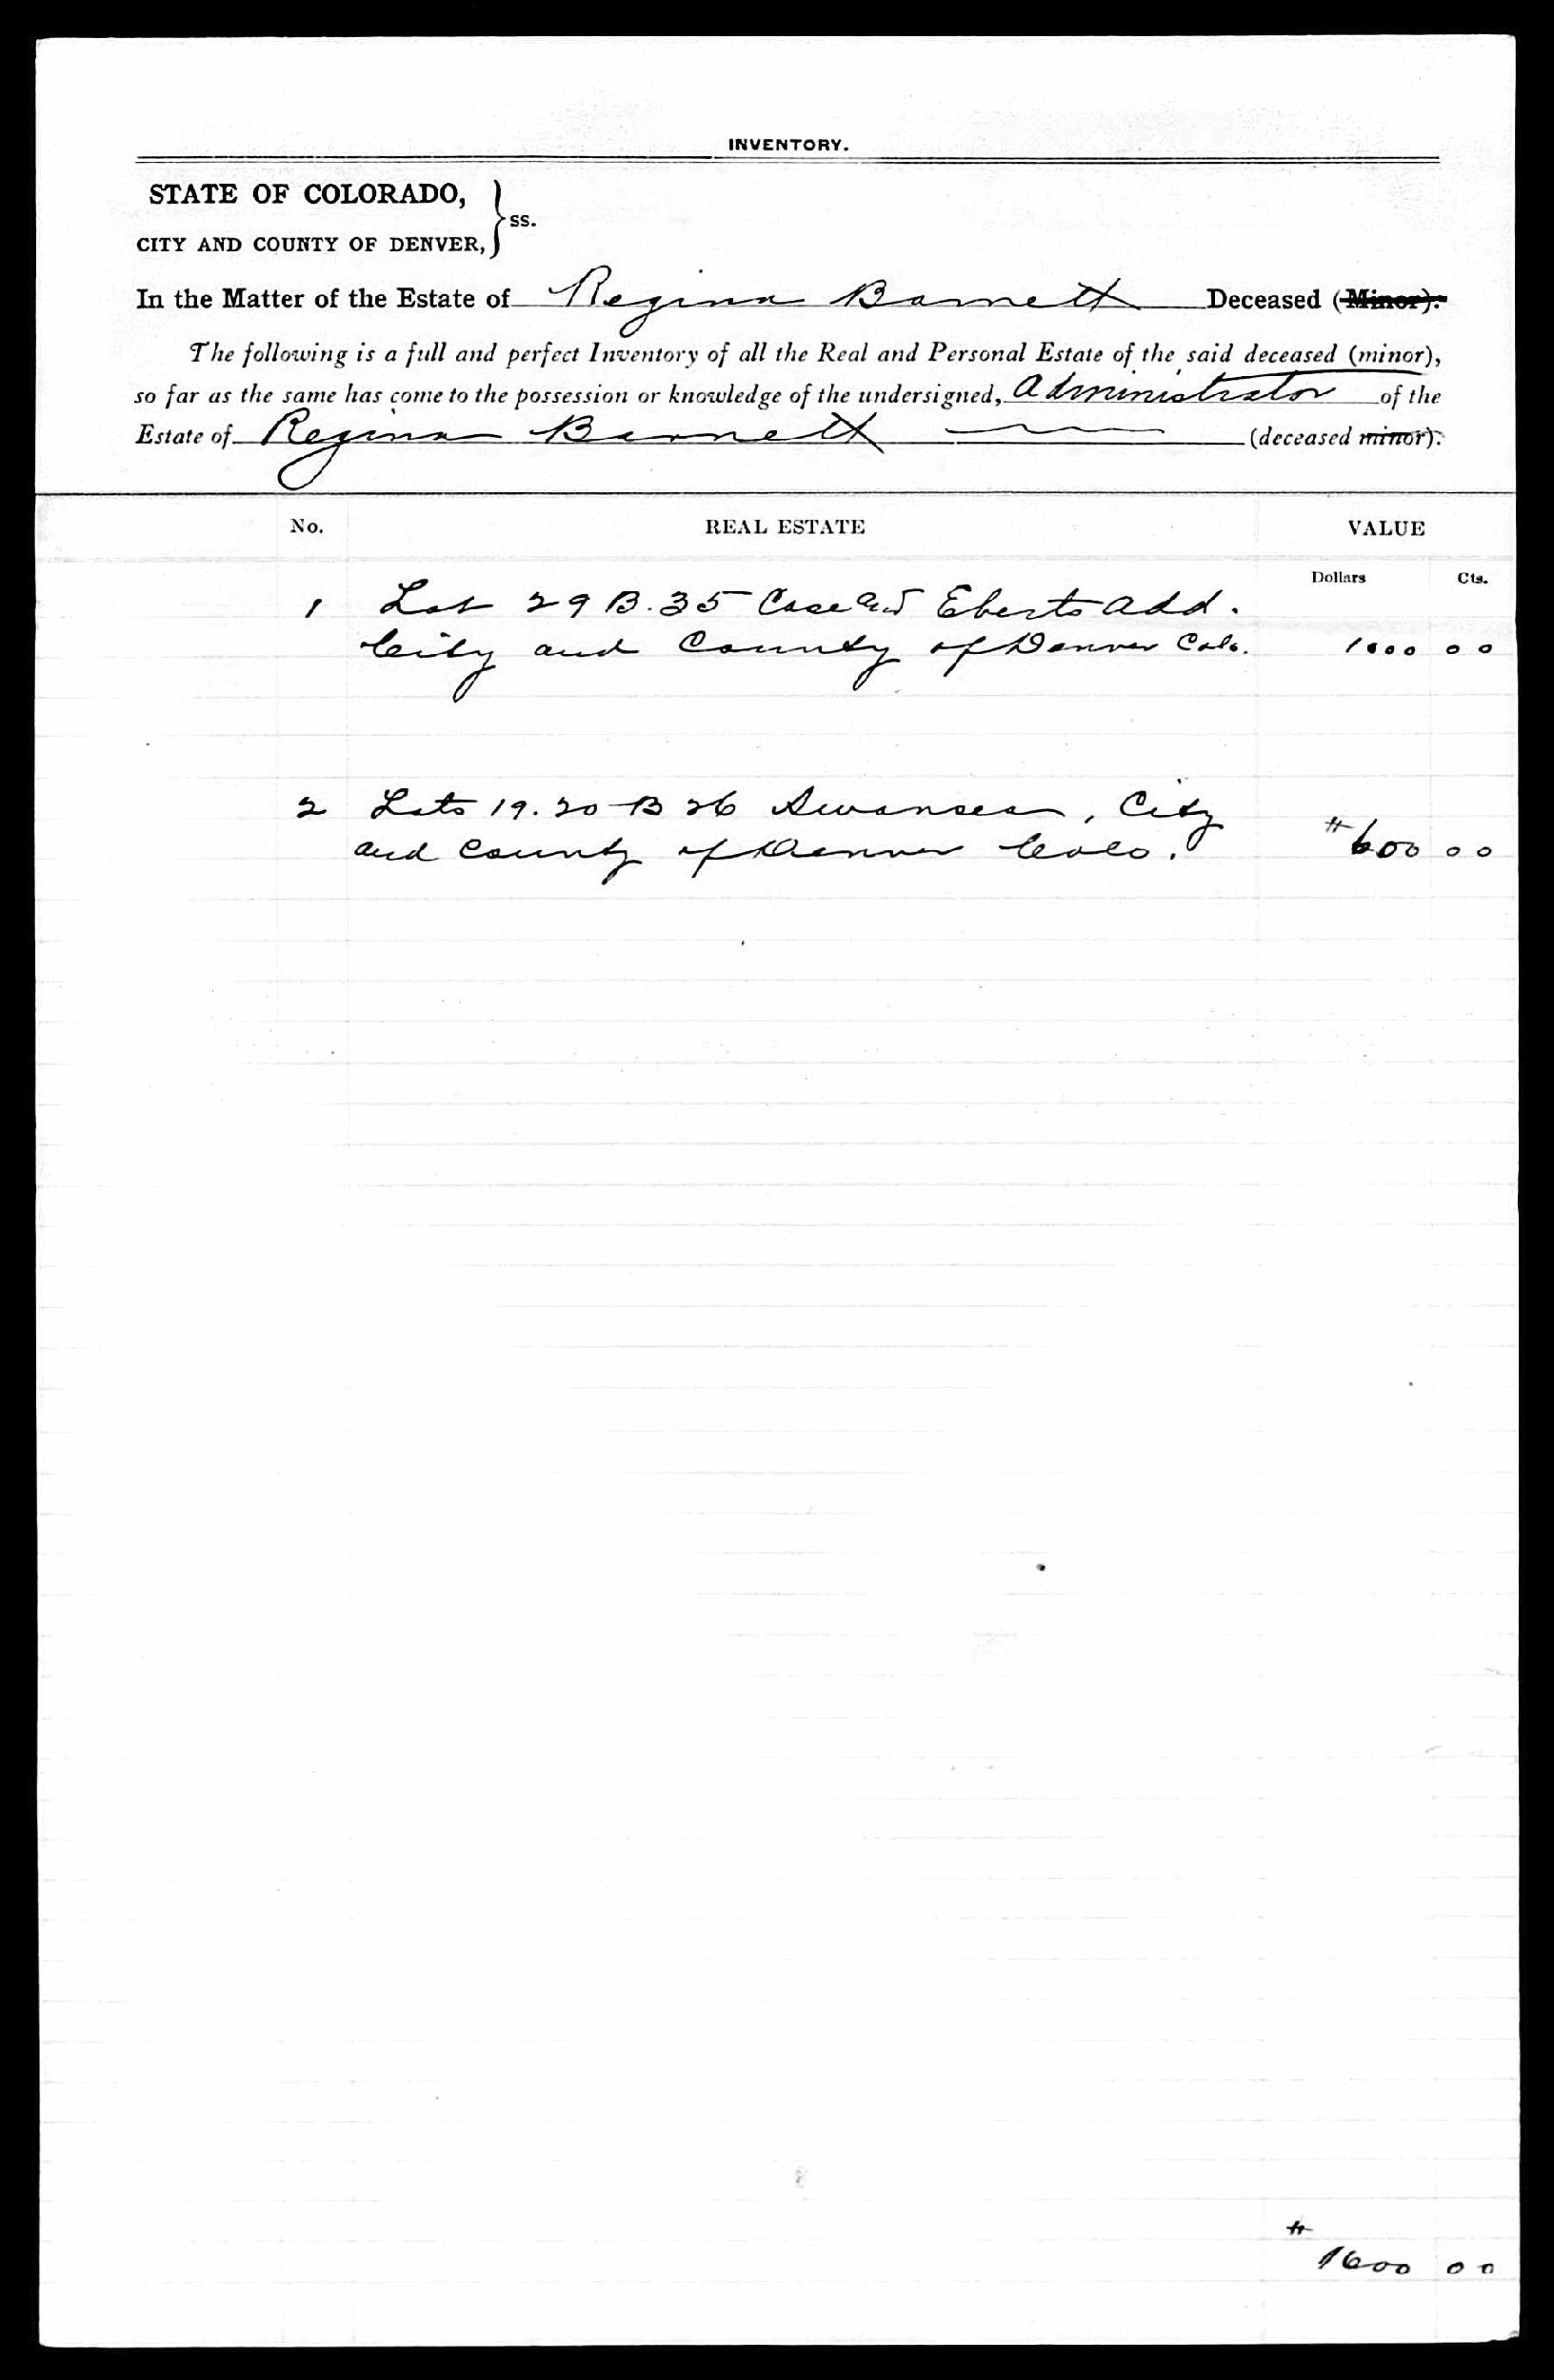 INVENTORY.
STATE OF COLORADO,
CITY AND COUNTY OF DENVER, } ss.
In the Matter of the Estate of Regina Barnett Deceased (Minor).
The following is a full and perfect Inventory of all the Real and Personal Estate of the said deceased (minor),
so far as the same has come to the possession or knowledge of the undersigned, Administrator of the
Estate of Regina Barnett (deceased minor).
No. REAL ESTATE VALUE
Dollars Cts.
1 Lot 29 B. 35 Case and Eberts Add.
City and County of Denver Colo. 1000 00
2 Lots 19. 20 B 26 Swansea, City
and County of Denver Colo. $600 00
$
1600 00